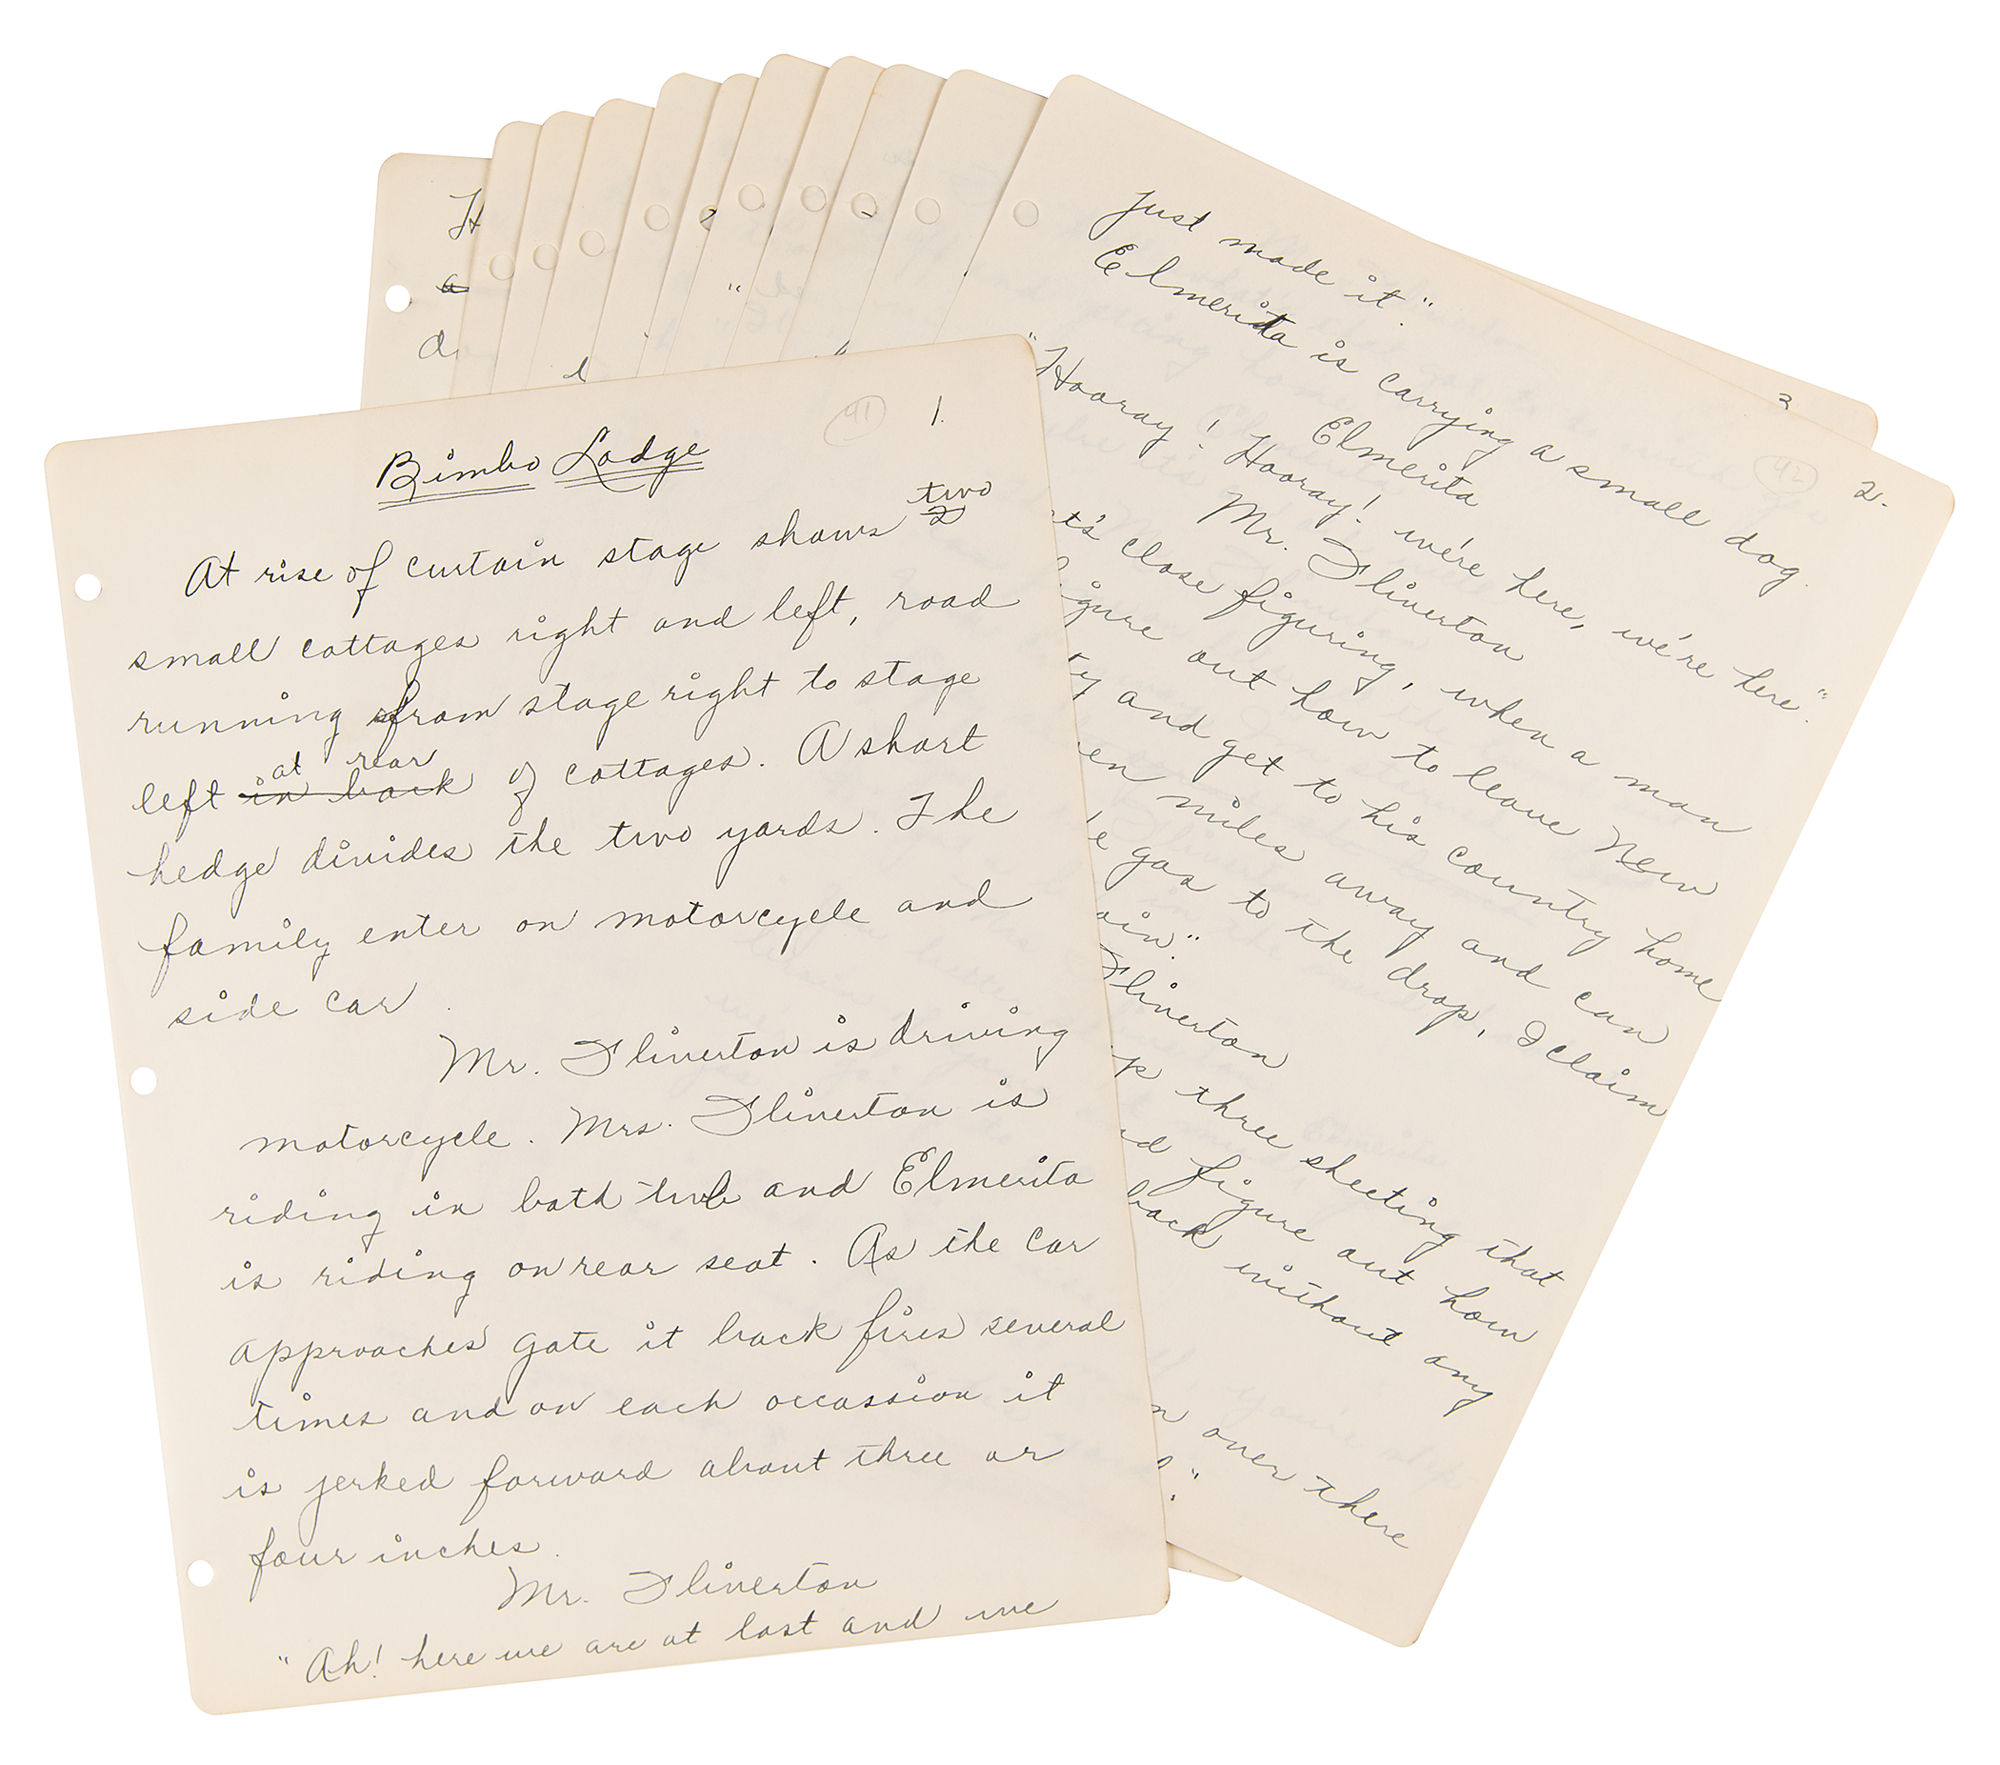 41 1.
Bimbo Lodge
two
At rise of curtain stage shows 2
small cottages right and left, road
running from stage right to stage
at rear
left in back of cottages. A short
hedge divides the two yards. The
family enter on motorcycle and
side car.
Mr. Fliverton is driving
motorcycle. Mrs. Fliverton is
riding in bath tub and Elmerita
is riding on rear seat. As the car
approaches gate it back fires several
times and on each occassion it
is jerked forward about three or
four inches.
Mr. Fliverton
"Ah! here we are at last and we
42 2.
just made it".
Elmerita is carrying a small dog.
Elmerita
"Hooray! Hooray! we're here, we're here".
Mr. Fliverton
close figuring, when a man
figure out how to leave New
and get to his country home
miles away and can
gas to the drop, I claim
Fliverton
three sheeting that
figure out how
back without any
over there
3